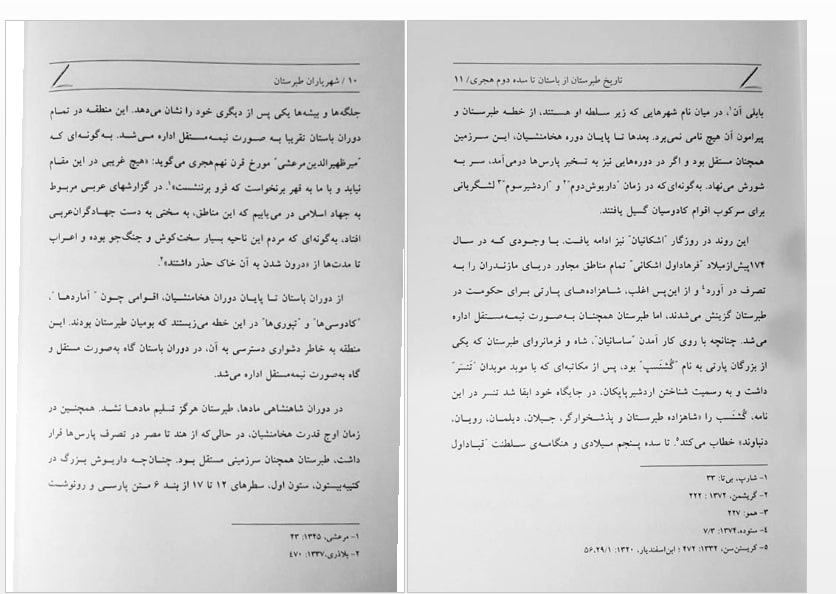 ۱۰ / شهریاران طبرستان
جلگه‌ها و بیشه‌ها یکی پس از دیگری خود را نشان می‌دهد. این منطقه در تمام
دوران باستان تقریبا به صورت نیمه‌مستقل اداره می‌شد. به‌گونه‌ای که
"میرظهیرالدین‌مرعشی" مورخ قرن نهم‌هجری می‌گوید: «هیچ غریبی در این مقام
نیابد و با ما به قهر برنخواست که فرو برننشست»۱. در گزارشهای عربی مربوط
به جهاد اسلامی در می‌یابیم که این مناطق، به سختی به دست جهادگران‌عربی
افتاد، به‌گونه‌ای که مردم این ناحیه بسیار سخت‌کوش و جنگ‌جو بوده و اعراب
تا مدت‌ها از «درون شدن به آن خاک حذر داشتند»۲.
از دوران باستان تا پایان دوران هخامنشیان، اقوامی چون "آماردها"،
"کادوسی‌ها" و "تپوری‌ها" در این خطه می‌زیستند که بومیان طبرستان بودند. این
منطقه به خاطر دشواری دسترسی به آن، در دوران باستان گاه به‌صورت مستقل و
گاه به‌صورت نیمه‌مستقل اداره می‌شد.
در دوران شاهنشاهی مادها، طبرستان هرگز تسلیم مادها نشد. همچنین در
زمان اوج قدرت هخامنشیان، در حالی‌که از هند تا مصر در تصرف پارس‌ها قرار
داشت، طبرستان همچنان سرزمینی مستقل بود. چنان‌چه داریوش بزرگ در
کتیبه‌بیستون، ستون اول، سطرهای ۱۲ تا ۱۷ از بند ۶ متن پارسی و رونوشت
۱- مرعشی، ۱۳۴۵: ۴۳
۲- بلاذری،۱۳۳۷: ۴۷۰
تاریخ طبرستان از باستان تا سده دوم هجری/ ۱۱
بابلی آن۱، در میان نام شهرهایی که زیر سلطه او هستند، از خطه طبرستان و
پیرامون آن هیچ نامی نمی‌برد. بعدها تا پایان دوره هخامنشیان، این سرزمین
همچنان مستقل بود و اگر در دوره‌هایی نیز به تسخیر پارس‌ها درمی‌آمد، سر به
شورش می‌نهاد. به‌گونه‌ای‌که در زمان "داریوش‌دوم"۲ و "اردشیرسوم"۳ لشگریانی
برای سرکوب اقوام کادوسیان گسیل یافتند.
این روند در روزگار "اشکانیان" نیز ادامه یافت. با وجودی که در سال
۱۷۴پیش‌ازمیلاد "فرهاداول اشکانی" تمام مناطق مجاور دریای مازندران را به
تصرف در آورد۴ و از این‌پس اغلب، شاهزاده‌های پارتی برای حکومت در
طبرستان گزینش می‌شدند، اما طبرستان همچنان به‌صورت نیمه‌مستقل اداره
می‌شد. چنانچه با روی کار آمدن "ساسانیان"، شاه و فرمانروای طبرستان که یکی
از بزرگان پارتی به نام "گُشنَسپ" بود، پس از مکاتبه‌ای که با موبد موبدان "تَنسَر"
داشت و به رسمیت شناختن اردشیربابکان، در جایگاه خود ابقا شد تنسر در این
نامه، گُشنَسپ را «شاهزاده طبرستان و پذشخوارگر، جیلان، دیلمان، رویان،
دنباوند» خطاب می‌کند۵. تا سده پنجم میلادی و هنگامه‌ی سلطنت "قباداول
۱- شارپ، بی‌تا: ۳۳
۲- گریشمن، ۱۳۷۲ : ۲۲۲
۳- همو: ۲۲۷
۴- ستوده،۱۳۷۴: ۷/۳
۵- کریستن‌سن، ۱۳۳۲: ۴۷۲ ؛ ابن‌اسفندیار، ۱۳۲۰: ۵۶،۲۹/۱